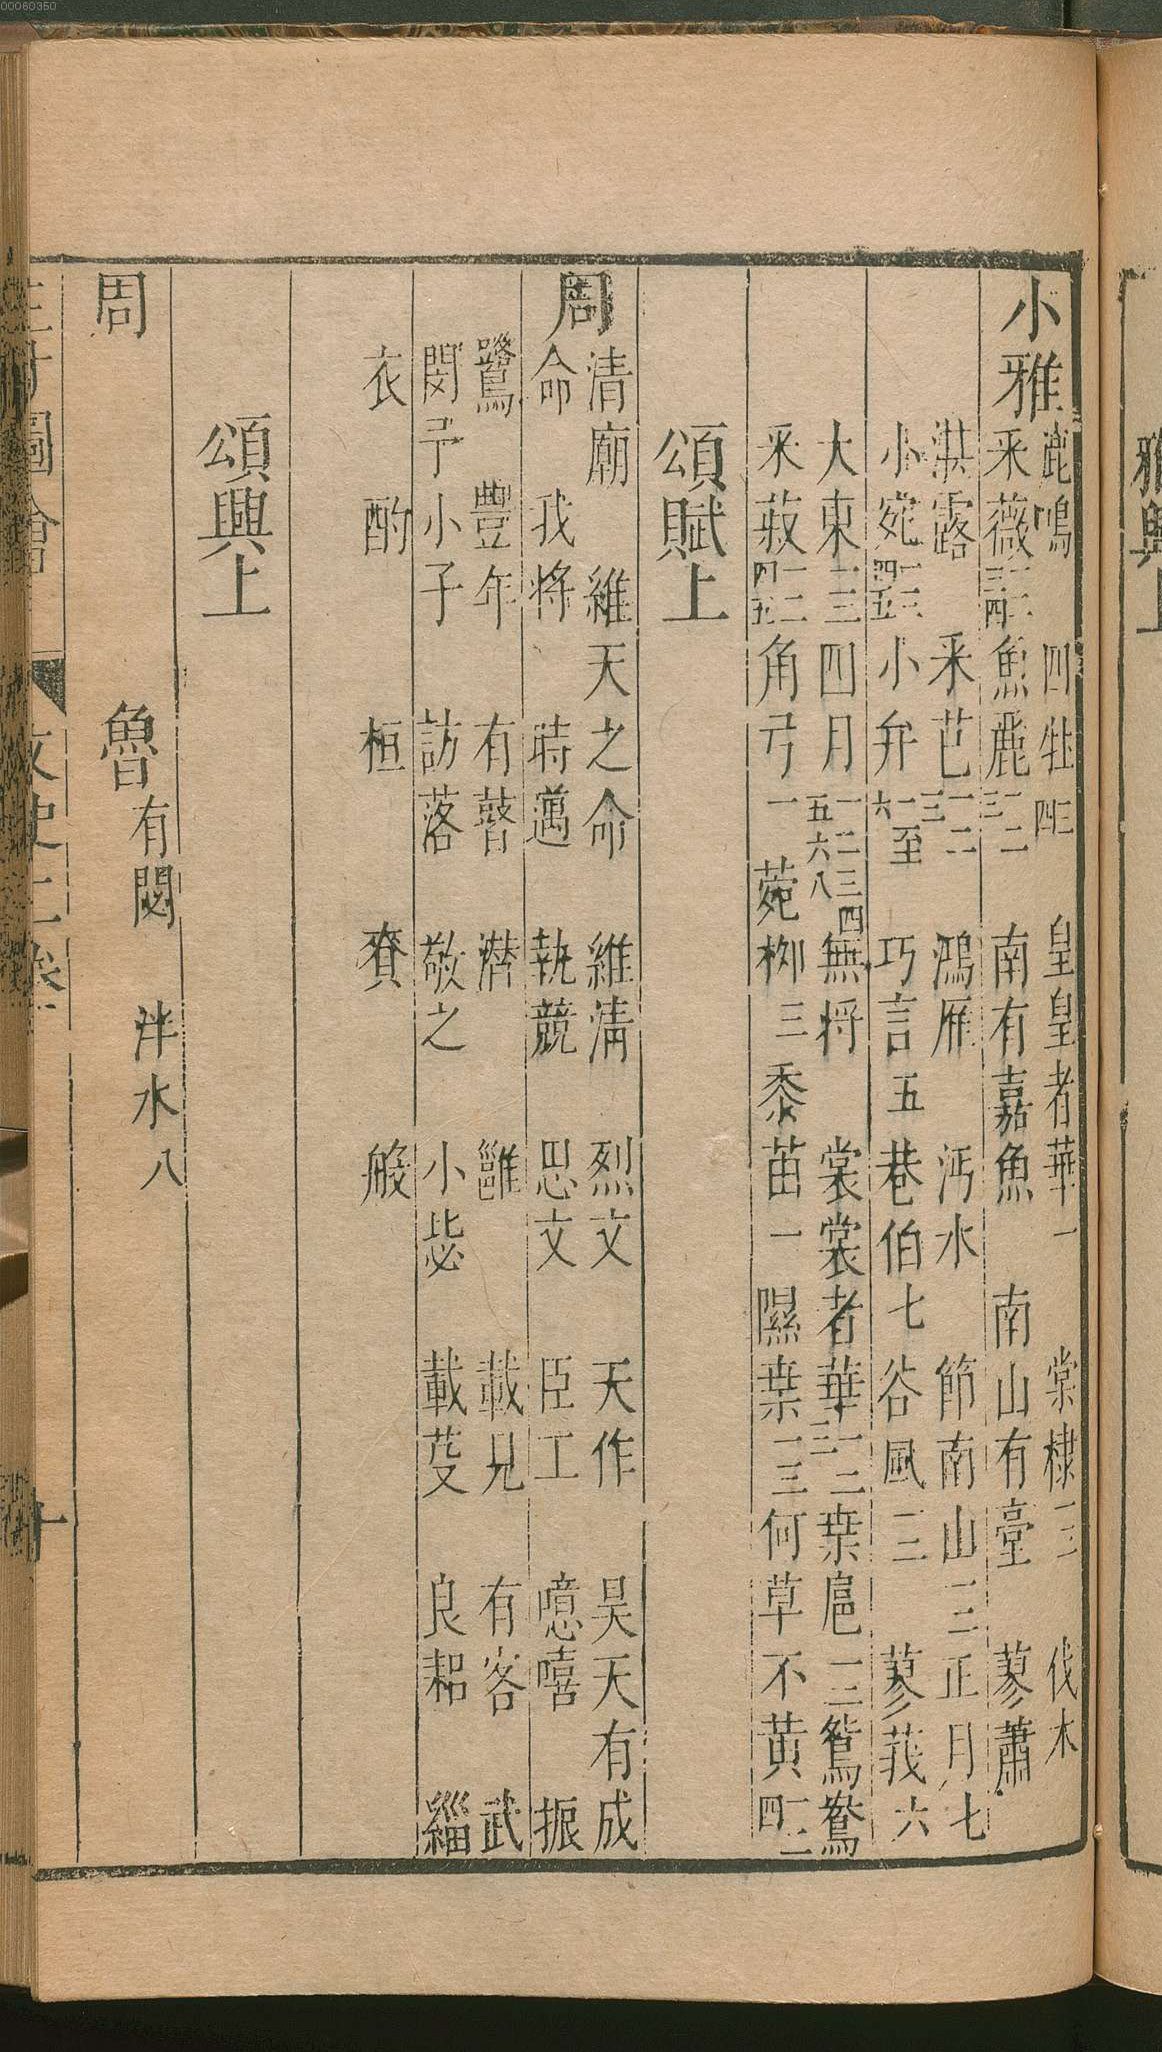 00060350
小雅
鹿鳴 四牡三四 皇皇者華一 棠棣三 伐木
采薇一二三四 魚麗一二三 南有嘉魚 南山有臺 蓼蕭
湛露 采芑一二三 鴻雁 沔水 節南山一二三 正月七
小宛一二三四五 小弁一至六 巧言五 巷伯七 谷風三 蓼莪六
大東一二三 四月一二三四五六八 無將 裳裳者華一二三 桑扈一二三 鴛鴦
采菽一二四五 角弓一 菀柳三 黍苗一 隰桑一二三 何草不黃一二四
頌賦上
周
清廟 維天之命 維清 烈文 天作 昊天有成
命 我將 時邁 執競 思文 臣工 噫嘻 振
鷺 豐年 有瞽 潛 雝 載見 有客 武
閔予小子 訪落 敬之 小毖 載芟 良耜 絲
衣 酌 桓 賚 般
頌興上
周 魯有閟 泮水八
三才圖會 文史二卷 十
雅興上